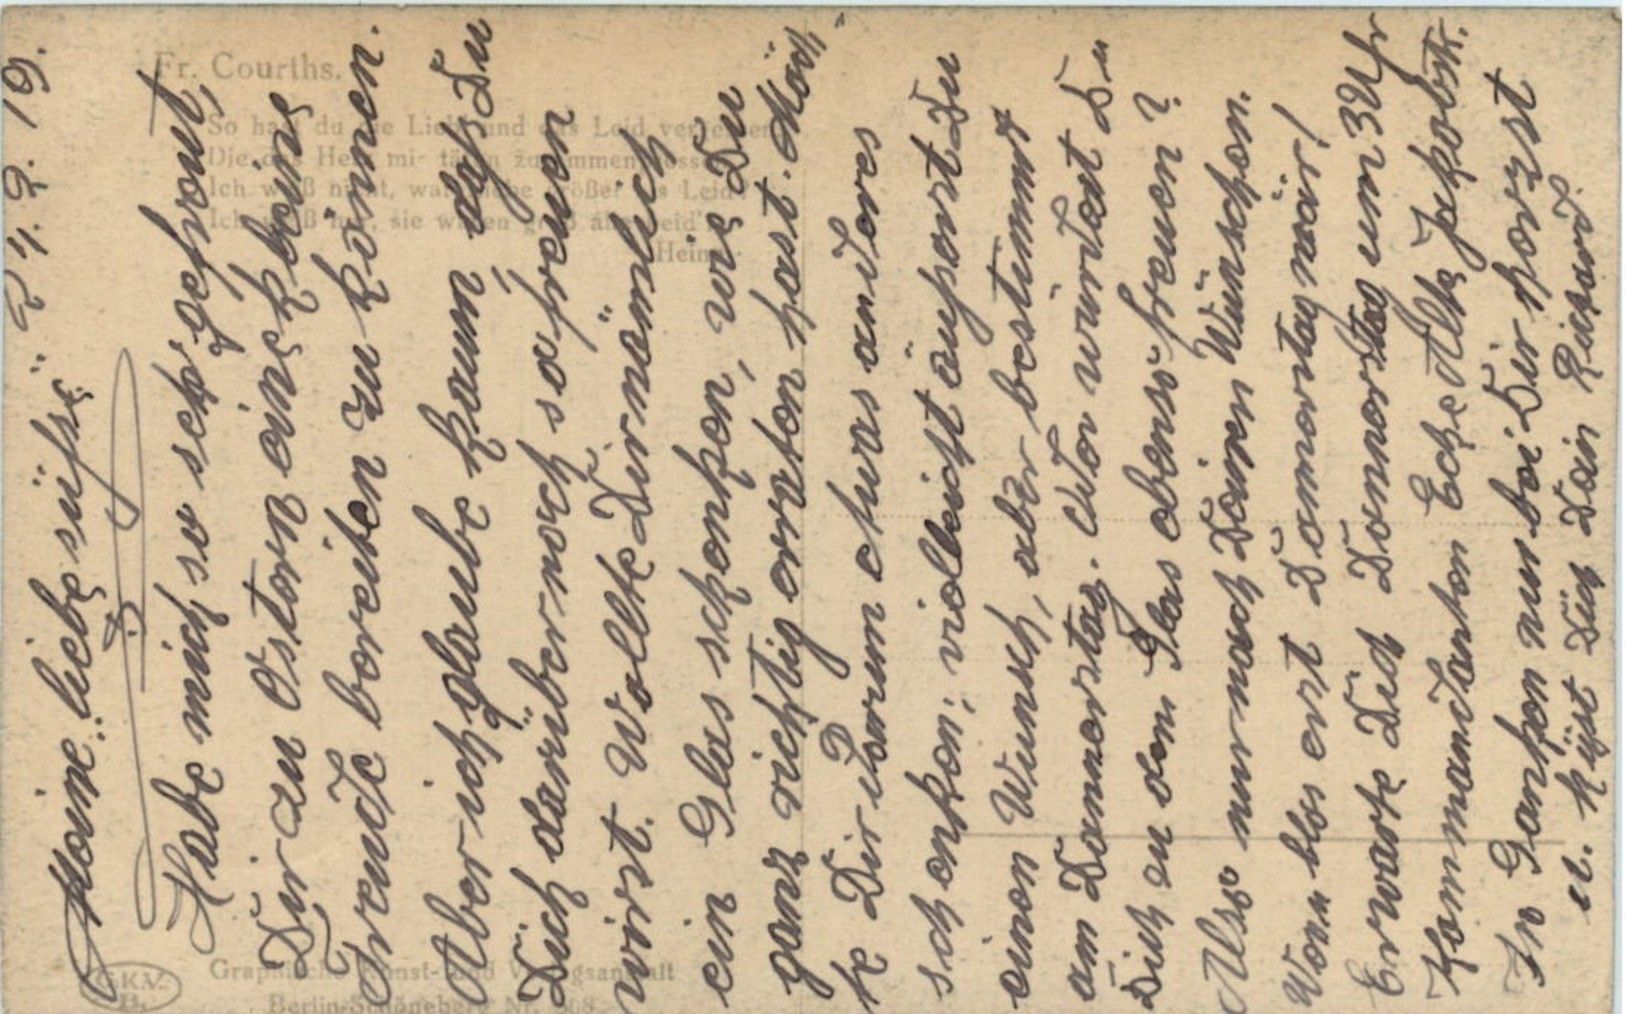 Fr. Courths.
So hast du die Lieb und das Leid
Ich weiß nicht, was Liebe größer als Leid?
Ich weiß nur, sie waren groß alle beid'!
Heine
Graphische Kunst- und Verlagsanstalt
Berlin-Schöneberg Nr.
G.K.V.
B.
19.
Meine liebe süße
Habe mich so sehr gefreut,
Dir zu Ostern eine kleine
Freude bereiten zu können.
Aber ich glaube kaum daß Du
Dich darüber noch so freuen
wirst. Wollte Dir nämlich
ein Glas schenken, wie Du
ganz richtig erraten hast. Möch-
te Dir darum etwas anderes
schenken; vielleicht äußerst Du
einen Wunsch, aber bestimmt
am Donnerstag. Oder würdest Du
Dich zu dem Glas ebenso freuen?
Also nur nach Deinen Wünschen.
Wenn blos erst Donnerstag wär!
Erwarte Dich Donnerstag um 3 Uhr
Kommandanten Ecke Alte Jakobstr.
In Gedanken nur bei Dir
u. küßt Dich Dein Richard.